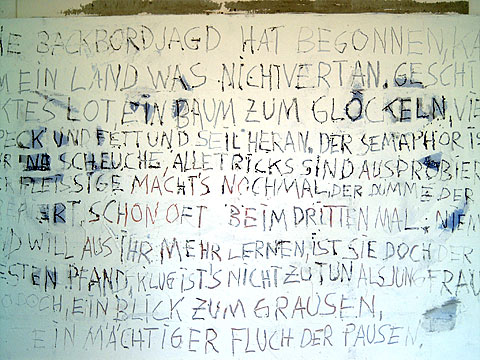 IE BACKBORDJAGD HAT BEGONNEN, KA
M EIN LAND WAS NICHT VERTAN. GESCHI
KTES LOT, EIN BAUM ZUM GLÖCKELN, VIE
PECK UND FETT UND SEIL HERAN. DER SEMAPHOR IS
SCHEUCHE, ALLE TRICKS SIND AUSPROBIER
FLEISSIGE MACHT'S NOCHMAL, DER DUMME DER
ERT, SCHON OFT BEIM DRITTEN MAL. NIEM
ND WILL AUS IHR MEHR LERNEN, IST SIE DOCH DER
ESTEN PFAND, KLUG IST'S NICHT ZU TUN ALS JUNGFRAU
DOCH, EIN BLICK ZUM GRAUSEN,
EIN MÄCHTIGER FLUCH DER PAUSEN.